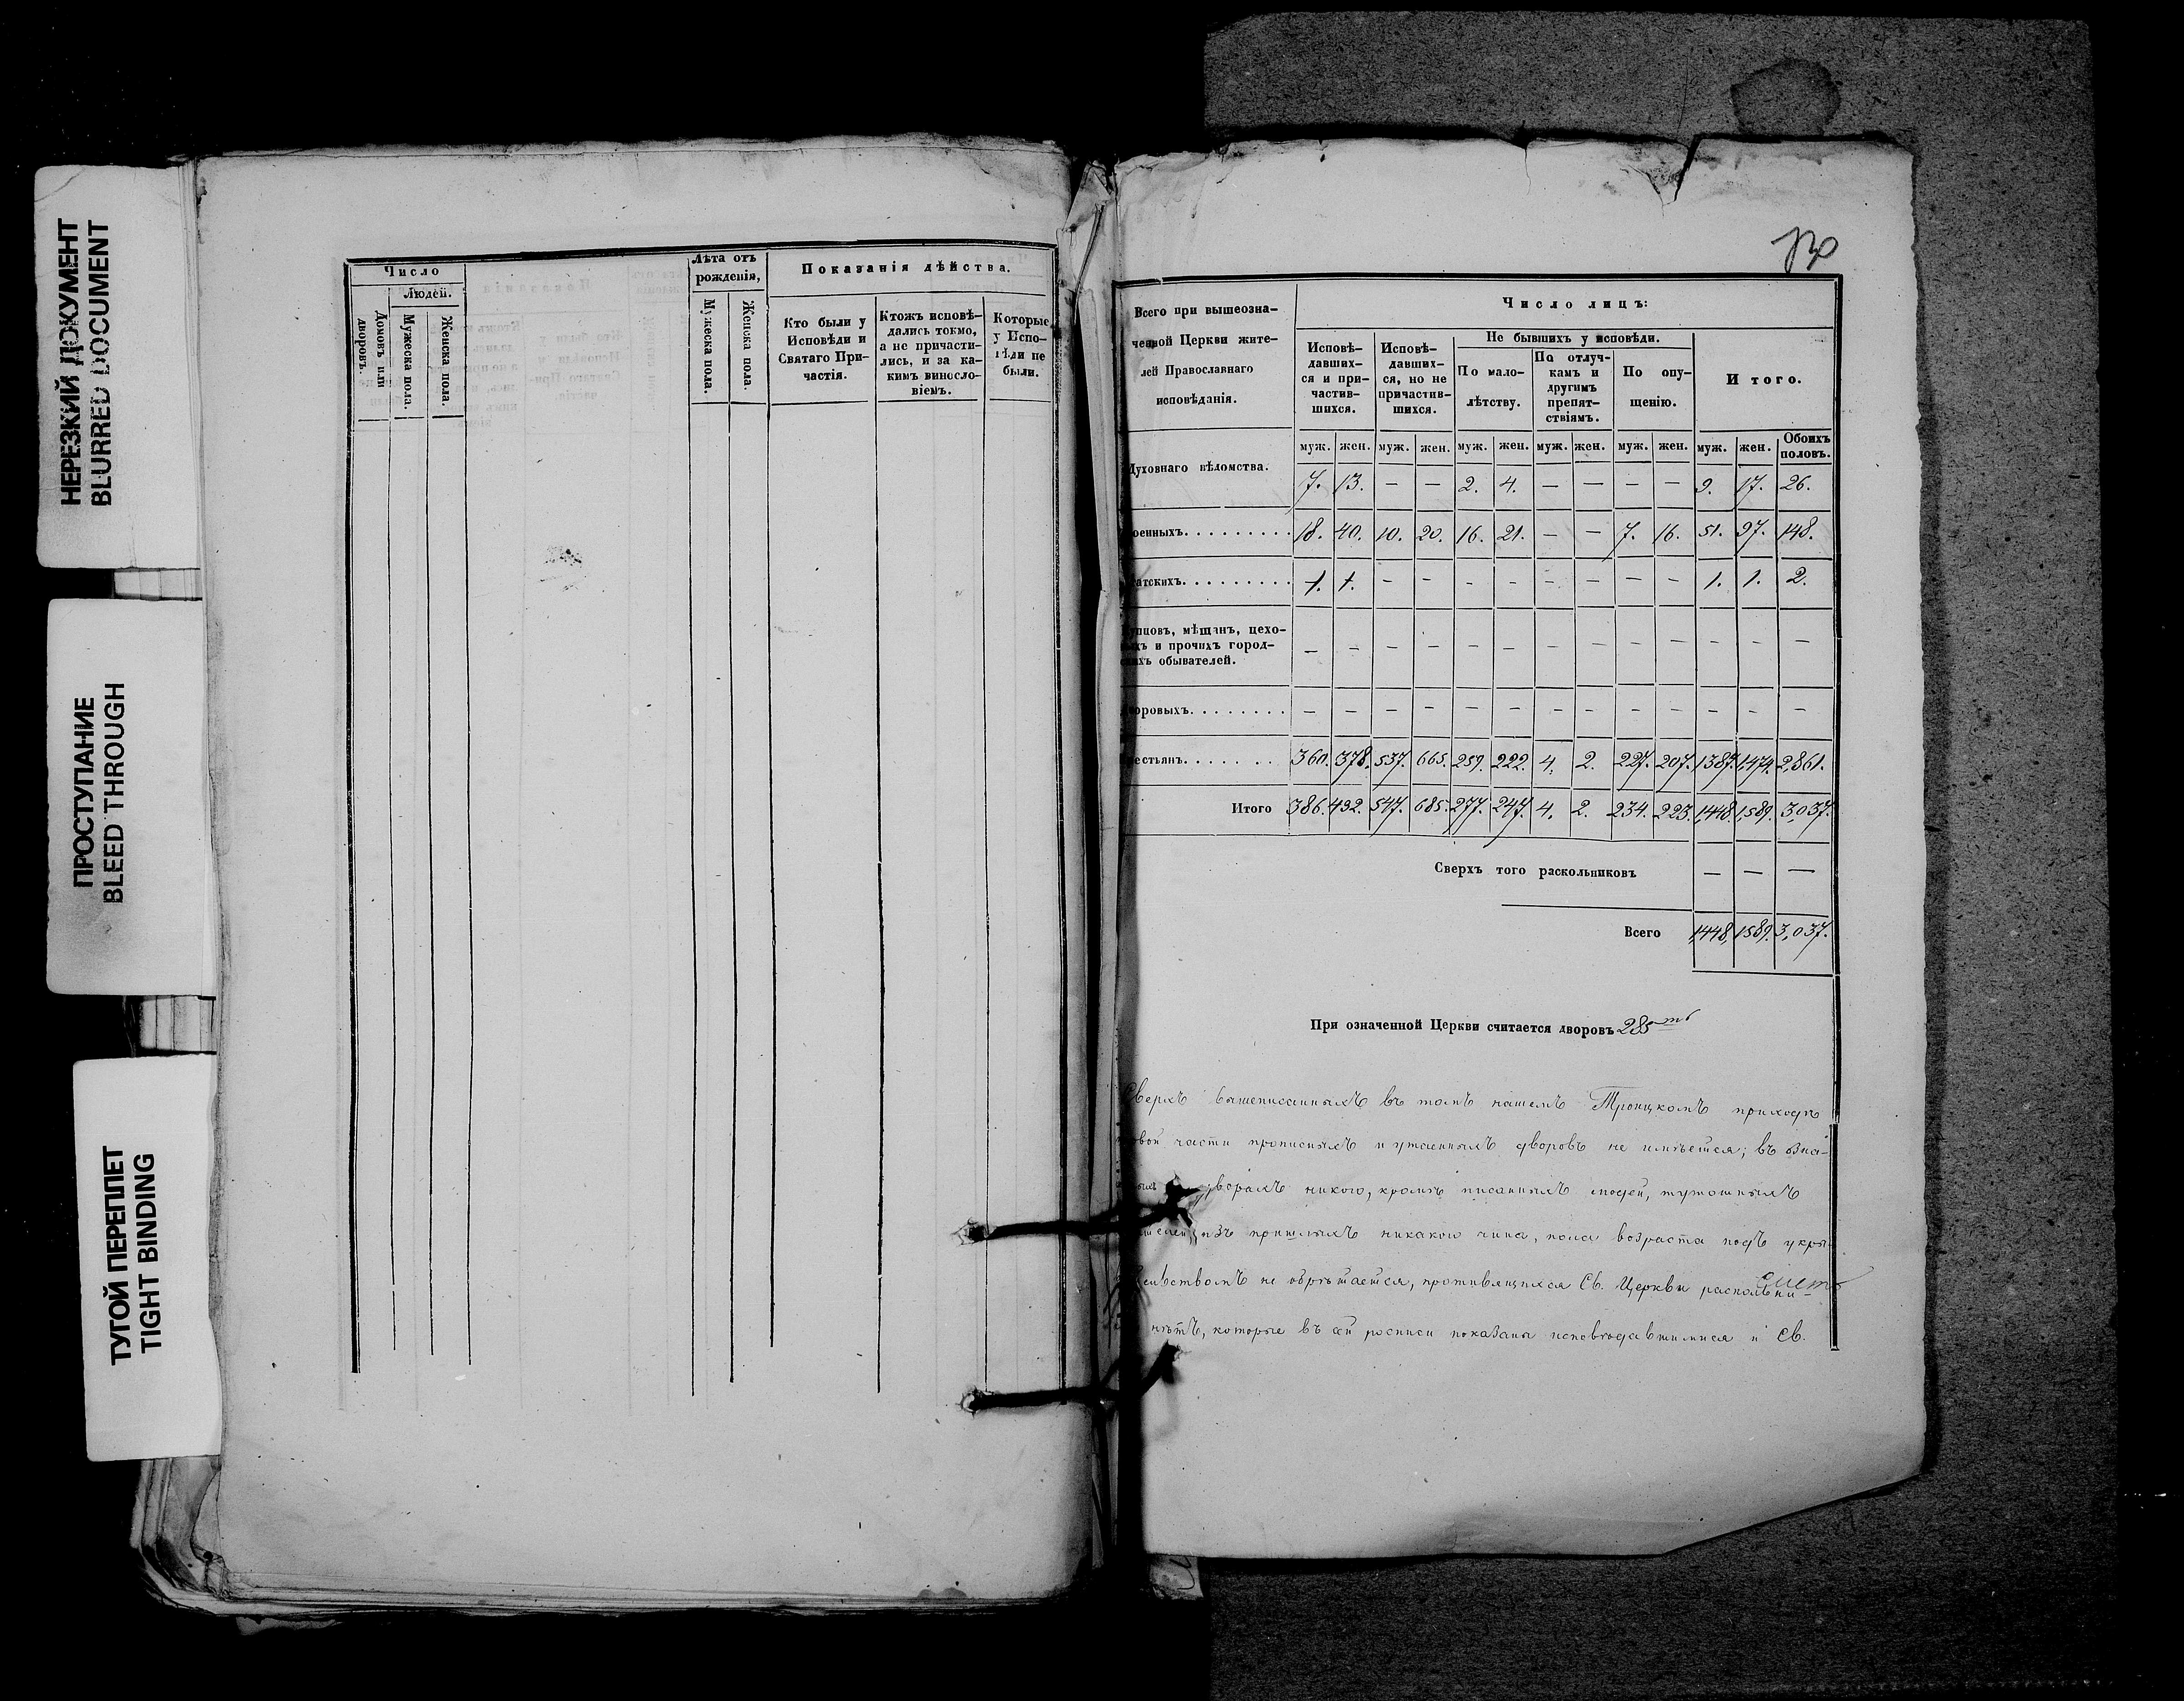 НЕРЕЗКИЙ ДОКУМЕНТ
BLURRED DOCUMENT
ПРОСТУПАНИЕ
BLEED THROUGH
ТУГОЙ ПЕРЕПЛЕТ
TIGHT BINDING
Число
Людей.
Домовъ или дворовъ.
Мужеска пола.
Женска пола.
Лѣта отъ
рожденія,
Мужеска пола.
Женска пола.
Показанія дѣйства.
Кто были у
Исповѣди и
Святаго При-
частія.
Ктожъ исповѣ-
дались токмо,
а не причасти-
лись, и за ка-
кимъ винсло-
віемъ.
Которые
у Испо-
вѣди не
были.
Всего при вышеозна-
ченной Церкви жите-
лей Православнаго
исповѣданія.
Число лицъ:
Исповѣ-
давших-
ся и при-
частив-
шихся.
Исповѣ-
давших-
ся, но не
причастив-
шихся.
Не бывшихъ у исповѣди.
По мало-
лѣтству.
По отлуч-
камъ и
другимъ
препят-
ствіямъ.
По опу-
щенію.
Итого.
муж. жен. муж. жен. муж. жен. муж. жен. муж. жен. муж. жен. Обоихъ половъ.
Духовнаго вѣдомства. 7. 13. — — 2. 4. — — — — 9. 17. 26.
оенныхъ. 18. 40. 10. 20. 16. 21. — — 7. 16. 51. 97. 148.
татскихъ. 1. 1. — — — — — — — — 1. 1. 2.
упцовъ, мѣщанъ, цехо-
ыхъ и прочихъ город-
скихъ обывателей. — — — — — — — — — — — — —
воровыхъ. — — — — — — — — — — — — —
естьянъ. 360. 378. 537. 665. 259. 222. 4. 2. 227. 207. 1387. 1,474. 2,861.
Итого 386. 432. 547. 685. 277. 247. 4. 2. 234. 223. 1,448. 1,589. 3,037.
Сверхъ того раскольниковъ — — —
Всего 1,448. 1589. 3,037.
При означенной Церкви считается дворовъ 285ть
Сверхъ вышеписанныхъ въ томъ нашемъ Троицкомъ приходѣ
части прописныхъ и утаенныхъ дворовъ не имѣется; въ
дворахъ никого, кромѣ писанныхъ людей, тутошныхъ
изъ пришлыхъ никакого чина, пола возраста подъ укры-
тельствомъ не обрѣтается, противящихся Св. Церкви
нѣтъ, которые въ сей росписи показаны исповѣдавшимися и Св.